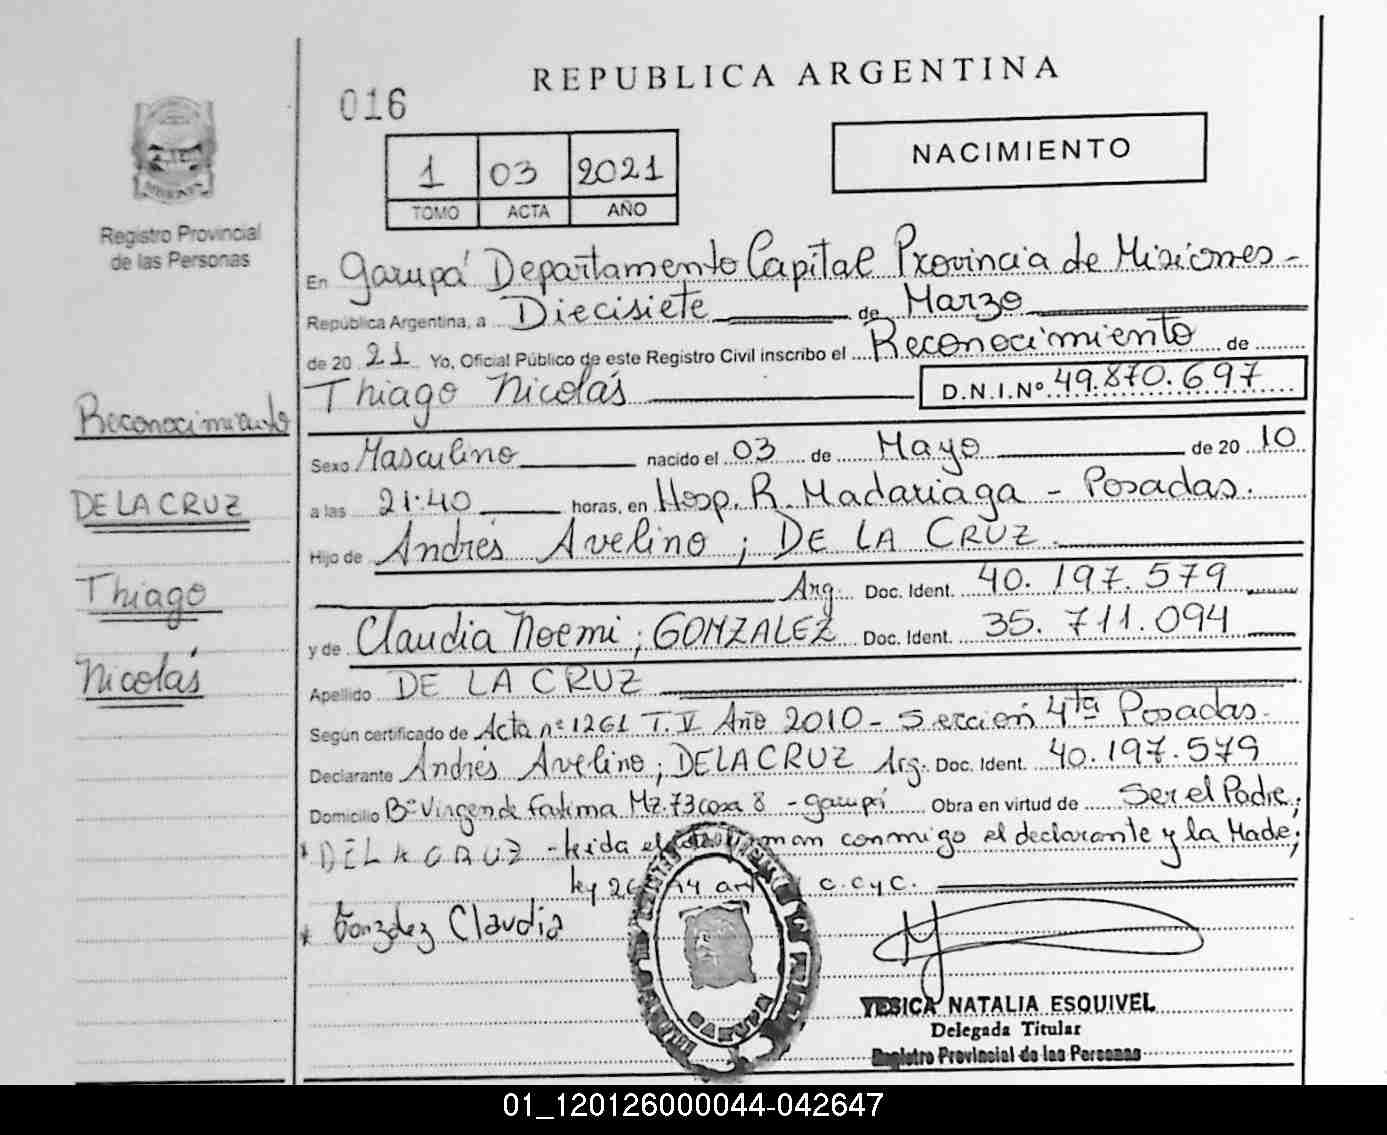 REPUBLICA ARGENTINA
016
NACIMIENTO
1 03 2021
TOMO ACTA AÑO
Registro Provincial
de las Personas
En Garupá Departamento Capital Provincia de Misiones -
República Argentina, a Diecisiete de Marzo
de 20 21 Yo, Oficial Público de este Registro Civil inscribo el Reconocimiento de
Thiago Nicolás D.N.I.Nº 49.870.697
Reconocimiento
DE LA CRUZ
Thiago
Nicolás
Sexo Masculino nacido el 03 de Mayo de 20 10
a las 21:40 horas, en Hosp. R. Madariaga - Posadas.
Hijo de Andrés Avelino ; DE LA CRUZ.
Arg. Doc. Ident. 40.197.579
y de Claudia Noemi ; GONZALEZ Doc. Ident. 35.711.094
Apellido DE LA CRUZ
Según certificado de Acta nº 1261 T. V Año 2010 - Sección 4ta Posadas.
Declarante Andrés Avelino ; DE LA CRUZ Arg. Doc. Ident. 40.197.579
Domicilio Bº Virgen de Fatima Mz. 73 casa 8 - Garupá Obra en virtud de Ser el Padre ;
DE LA CRUZ - Leida el conmigo el declarante y la Made ;
ley C.C y C.
Gonzalez Claudia
GARUPA
YESICA NATALIA ESQUIVEL
Delegada Titular
Registro Provincial de las Personas
01_120126000044-042647